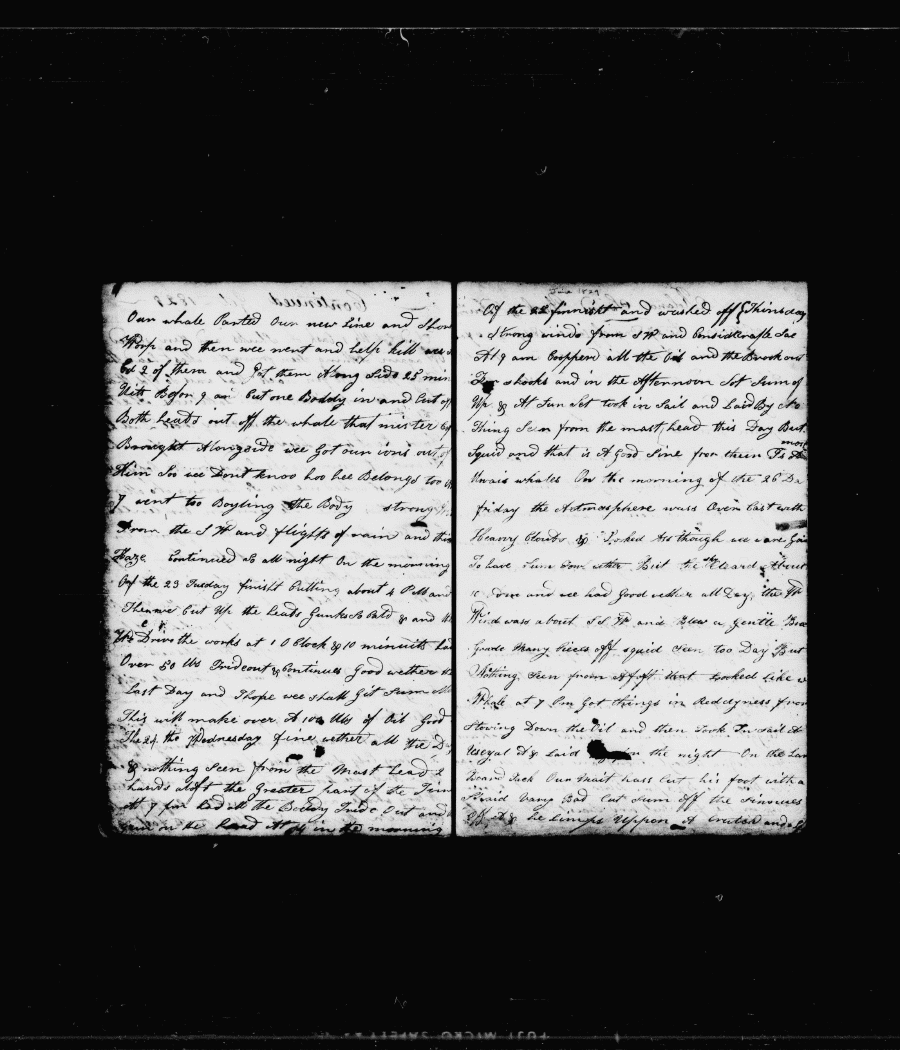 Our whale Parted Our new Line and
Worp and then wee went and help kill
2 of them and Got them Along Side 25 min
Before 9 am Cut one Boddy in and Cut of
Both heads out off the whale that mister
Brought Alongside wee Got our irons out of
Him Soo wee Dont knoo hoo hee Belongs too
7 went too Boyling the Body strong
From the S W and flights of rain and
Haze Continued So all night On the morning
Off the 23 Tuesday finisht Cutting about 4 PM and
Then wee Cut Up the heads Junks & and
Drive the works at 10 Clock & 10 minuits
Over 50 bbs Tridout & Continues Good wether
Last Day and I hope wee shall Get Sum
This will make over A 100 bbs of Oil Good
The 24 the Wednesday fine wether all the D
& nothing Seen from the Mast head 2
hands aloft the Greater part of the Time
At 7 pm had all the Boddy Tride Out and
the head At in the morning
June 1829
Off the 25 finnisht and washed off Thirsday
Strong winds from S W and Considerable Sae
At 9 am Cooppers all the Oil and the Broak out
For shooks and in the Afternoon Sot Sum of
Up & At Sun Set took in Sail and Laid By
Thing Seen from the mast head this Day But
most
Squid and that is A Good Sine for them
whales On the morning of the 26 Da
friday the Actmosphere wass Over Cast with
Heavey Clouds & Looked As though wee ware Goin
To have Sum wether But the Cleard About
and we had Good wether all Day, the
Wind wass about S S W and Blew a Gentle Bree
Goode Many pieces off squid Seen too Day But
Nothing Seen from Afoft that Looked Like
Whale at 7 Pm Got things in Reddyness from
Stowing Down the Oil and then Took In Sail
Useyal & Laid the night On the Lar
Board Tack Our mait hass Cut his foot with a
Spaid Vary Bad Cut Sum off the Sinnues
& he Limps Uppon A Crutch and